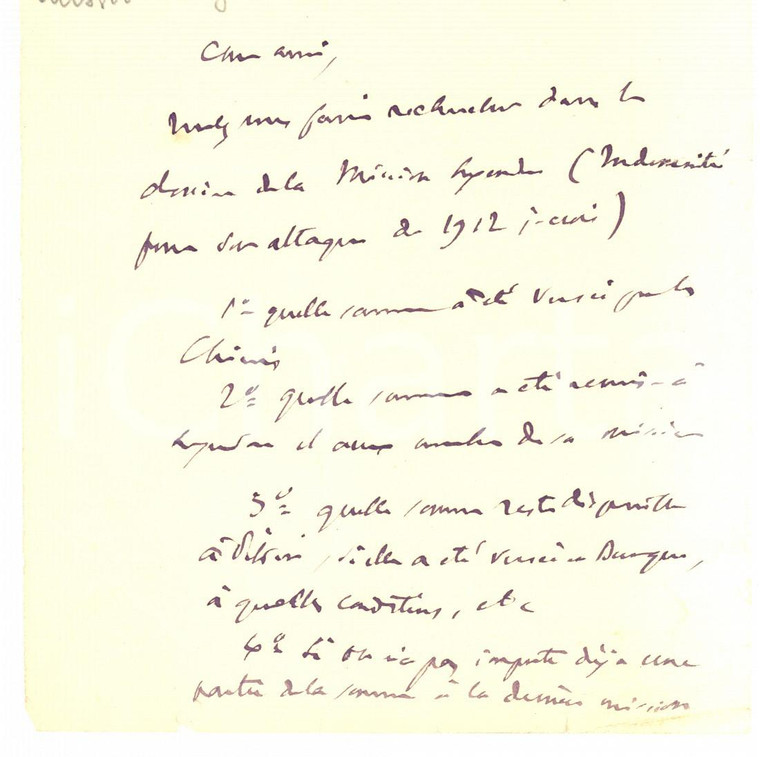 Cher ami,
Voulez vous faire rechercher dans le
dossier de la Mission Legendre (Indemnité
pour son attaque de 1912 je crois)
1º quelle somme a été versée par les
Chinois
2º quelle somme a été remise à
Legendre et aux membres de sa mission
3º quelle somme reste disponible
à Pékin, si elle a été versée en Banque,
à quelles conditions, etc
4º Si on n'a pas imputé déjà une
partie de la somme à la dernière mission